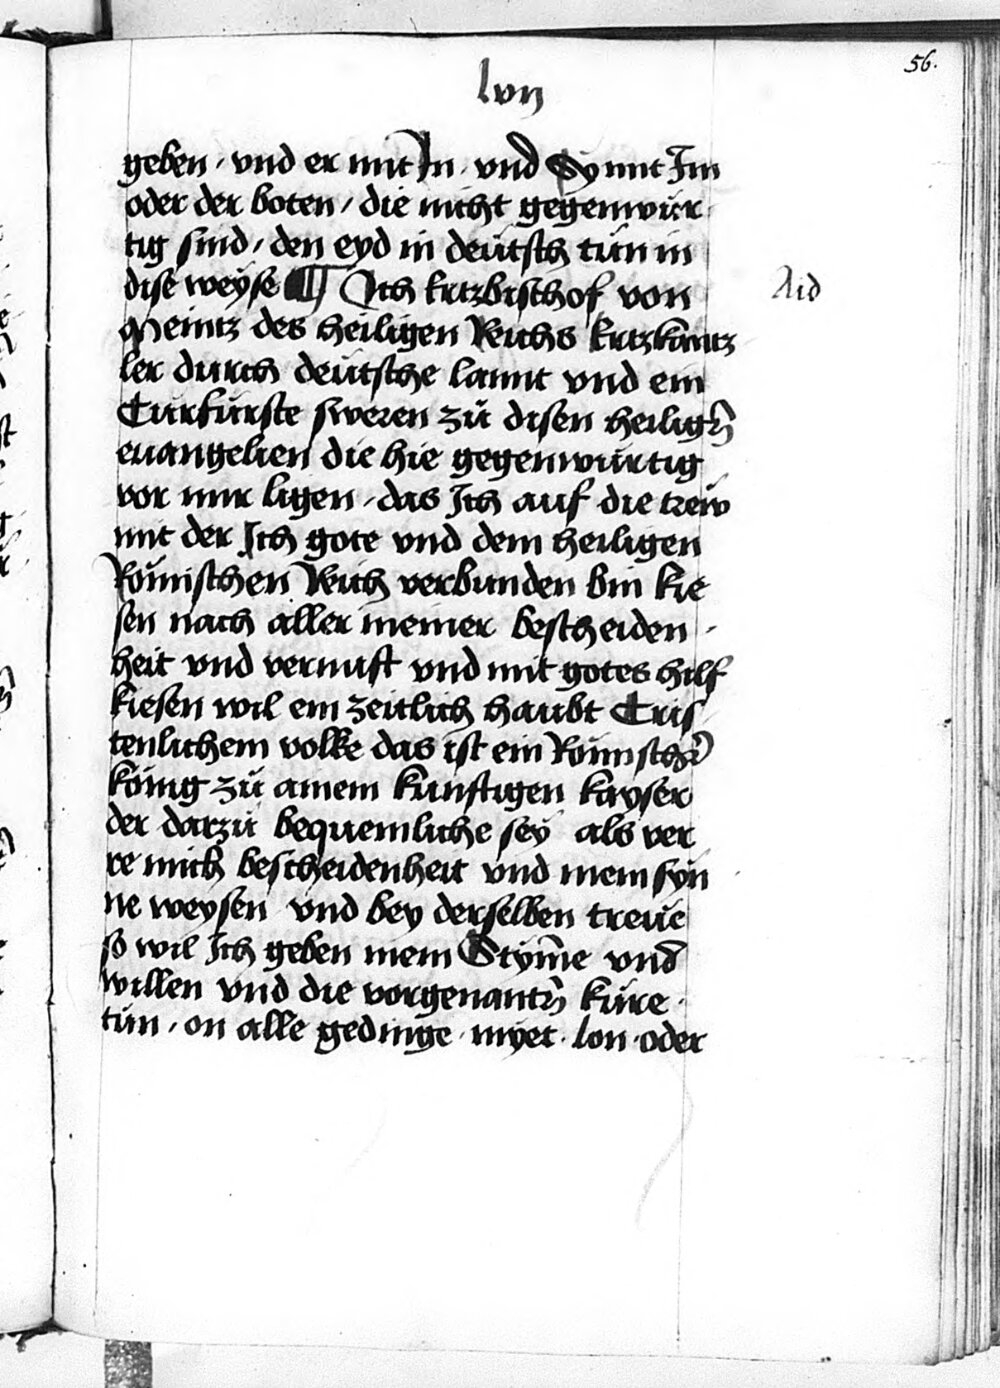 56.
lvij
geben / vnd er mit In / vnd Sy mit Im
oder der boten / die nicht gegenwür-
tig sind / den eyd in deütsch tün in
dise weyse ¶ Ich Ertzbischof von
Aid
Meintz des heiligen Reichs Ertzkantz
ler durch deütsche lannt vnd ein
Curfürste sweren zü disen heiligen̄
euangelien die hie gegenwürtig
vor mir ligen / das Ich auf die trew
mit der Ich gote vnd dem heiligen
Römischen Reich verbunden bin kie
sen nach aller meiner bescheiden -
heit vnd vernuft vnd mit gotes hilf
kiesen wil ein zeitlich haubt Cris-
tenlichem volke das ist ein Römischer
könig zü ainem kunftigen kayser
der darzü bequemliche sey als ver
re mich bescheidenheit vnd mein syn
ne weysen vnd bey derselben treue
so wil Ich geben mein Stym̄e vnd
willen vnd die vorgenantn̄ küre -
tün / on alle gedinge / myet / lon / oder